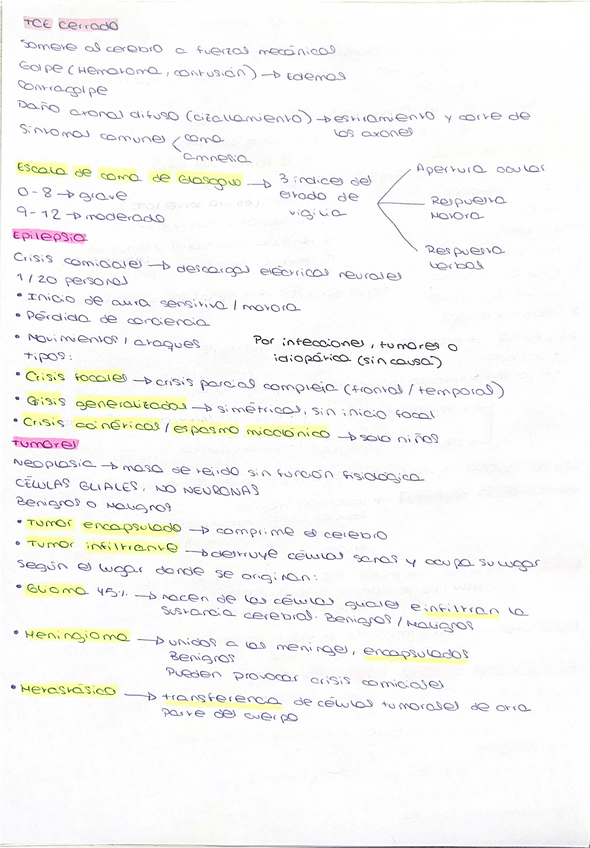 TCE cerrado
Somete al cerebro a fuerzas mecánicas
Golpe (Hematoma, contusión) → Edemas
Contragolpe
Daño axonal difuso (cizallamiento) → estiramiento y corte de los axones
Síntomas comunes coma
amnesia
Escala de coma de Glasgow → 3 índices del estado de vigilia
Apertura ocular
Respuesta Motora
Respuesta Verbas
0-8 → grave
9-12 → moderado
Epilepsia
Crisis comiciales → descargas eléctricas neurales
1/20 personas
• Inicio de aura sensitiva / motora
• Pérdida de conciencia
• Movimientos / ataques
Por infecciones, tumores o idiopática (sin causa)
Tipos:
• Crisis focales → crisis parcial compleja (frontal / temporal)
• Crisis generalizadas → simétricas, sin inicio focal
• Crisis acinéticas / espasmo mioclónico → solo niños
Tumores
Neoplasia → masa de tejido sin función fisiológica
CÉLULAS GLIALES, NO NEURONAS
Benignos o Malignos
• Tumor encapsulado → comprime el cerebro
• Tumor infiltrante → destruye células sanas y ocupa su lugar
Según el lugar donde se originan:
• Glioma 45% → nacen de las células gliales e infiltran la
sustancia cerebral. Benignos / Malignos
• Meningioma → unidos a las meninges, encapsulados
Benignos
Pueden provocar crisis comiciales
• Metastásico → transferencia de células tumorales de otra
parte del cuerpo